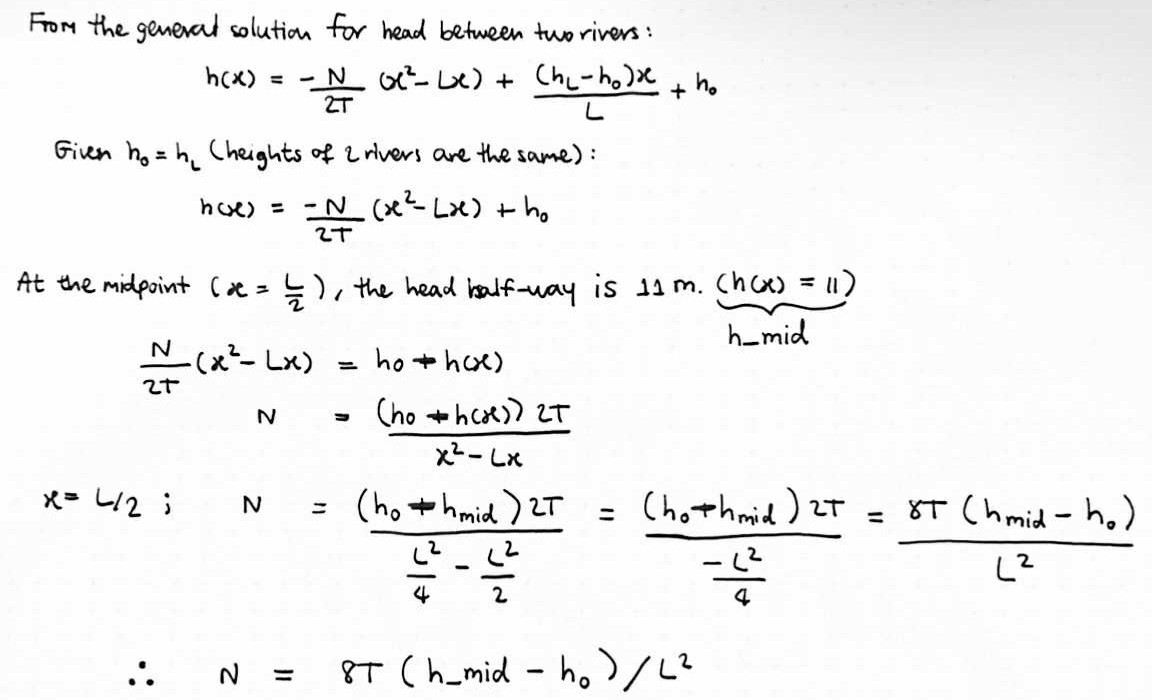 From the general solution for head between two rivers:
h(x) = -N/2T (x² - Lx) + (h_L - h₀)x/L + h₀
Given h₀ = h_L (heights of 2 rivers are the same):
h(x) = -N/2T (x² - Lx) + h₀
At the midpoint (x = L/2), the head half-way is 11 m. (h(x) = 11)
h_mid
N/2T (x² - Lx) = h₀ + h(x)
N = (h₀ + h(x)) 2T / x² - Lx
x = L/2 ; N = (h₀ + h_mid) 2T / (L²/4 - L²/2) = (h₀ + h_mid) 2T / (-L²/4) = 8T (h_mid - h₀) / L²
∴ N = 8T (h_mid - h₀)/L²